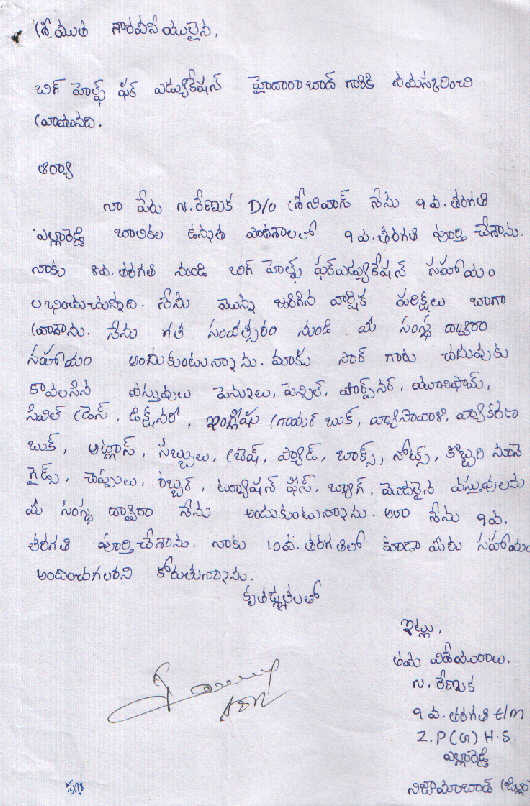 శ్రీయుత గౌరవనీయులైన,
బిగ్ హెల్ప్ ఫర్ ఎడ్యుకేషన్ హైదరాబాద్ గారికి నమస్కరించి
వ్రాయునది.
ఆర్యా
నా పేరు న. రేణుక D/O శ్రీనివాస్ నేను 9వ. తరగతి
ఎల్లారెడ్డి బాలికల ఉన్నత పాఠశాలలో 9వ. తరగతి పూర్తి చేశాను.
నాకు 8వ. తరగతి నుండి బిగ్ హెల్ప్ ఫర్ఎడ్యుకేషన్ సహాయం
లభించుచున్నాది. నేను మొన్న జరిగిన వార్షిక పరీక్షలు బాగా
వ్రాశాను. నేను గత సంవత్సరం నుండి మీ సంస్థ ద్వారా
సహాయం అందుకుంటున్నాను. మాకు సార్ గారు చదువుకు
కావలసిన వస్తువులు పెన్నులు, పెన్సిల్, షార్ప్‌నర్, యూనిఫామ్,
సివిల్ డ్రెస్, డిక్షనరీ, ఇంగ్లీషు గ్రామర్ బుక్, వ్యాకరణ
బుక్, అట్లాస్, సబ్బులు, బ్రెష్, ప్యాడ్, బాక్స్, నోట్స్, కొబ్బరి నూనె
గైడ్స్, చెప్పులు, రబ్బర్, ట్యూషన్ ఫీస్, బ్యాగ్, మొదలైన వస్తువులను
మీ సంస్థ ద్వారా నేను అందుకుంటున్నాను. అలా నేను 9వ.
తరగతి పూర్తిచేశాను. నాకు 10వ. తరగతిలో కూడా మీరు సహాయం
అందించగలరని కోరుతున్నాను.
కృతజ్ఞతలతో
ఇట్లు,
తమ విధేయురాలు.
న. రేణుక
9వ. తరగతి E/M
Z.P(G) H.S
ఎల్లారెడ్డి
నిజామాబాద్ (జిల్లా